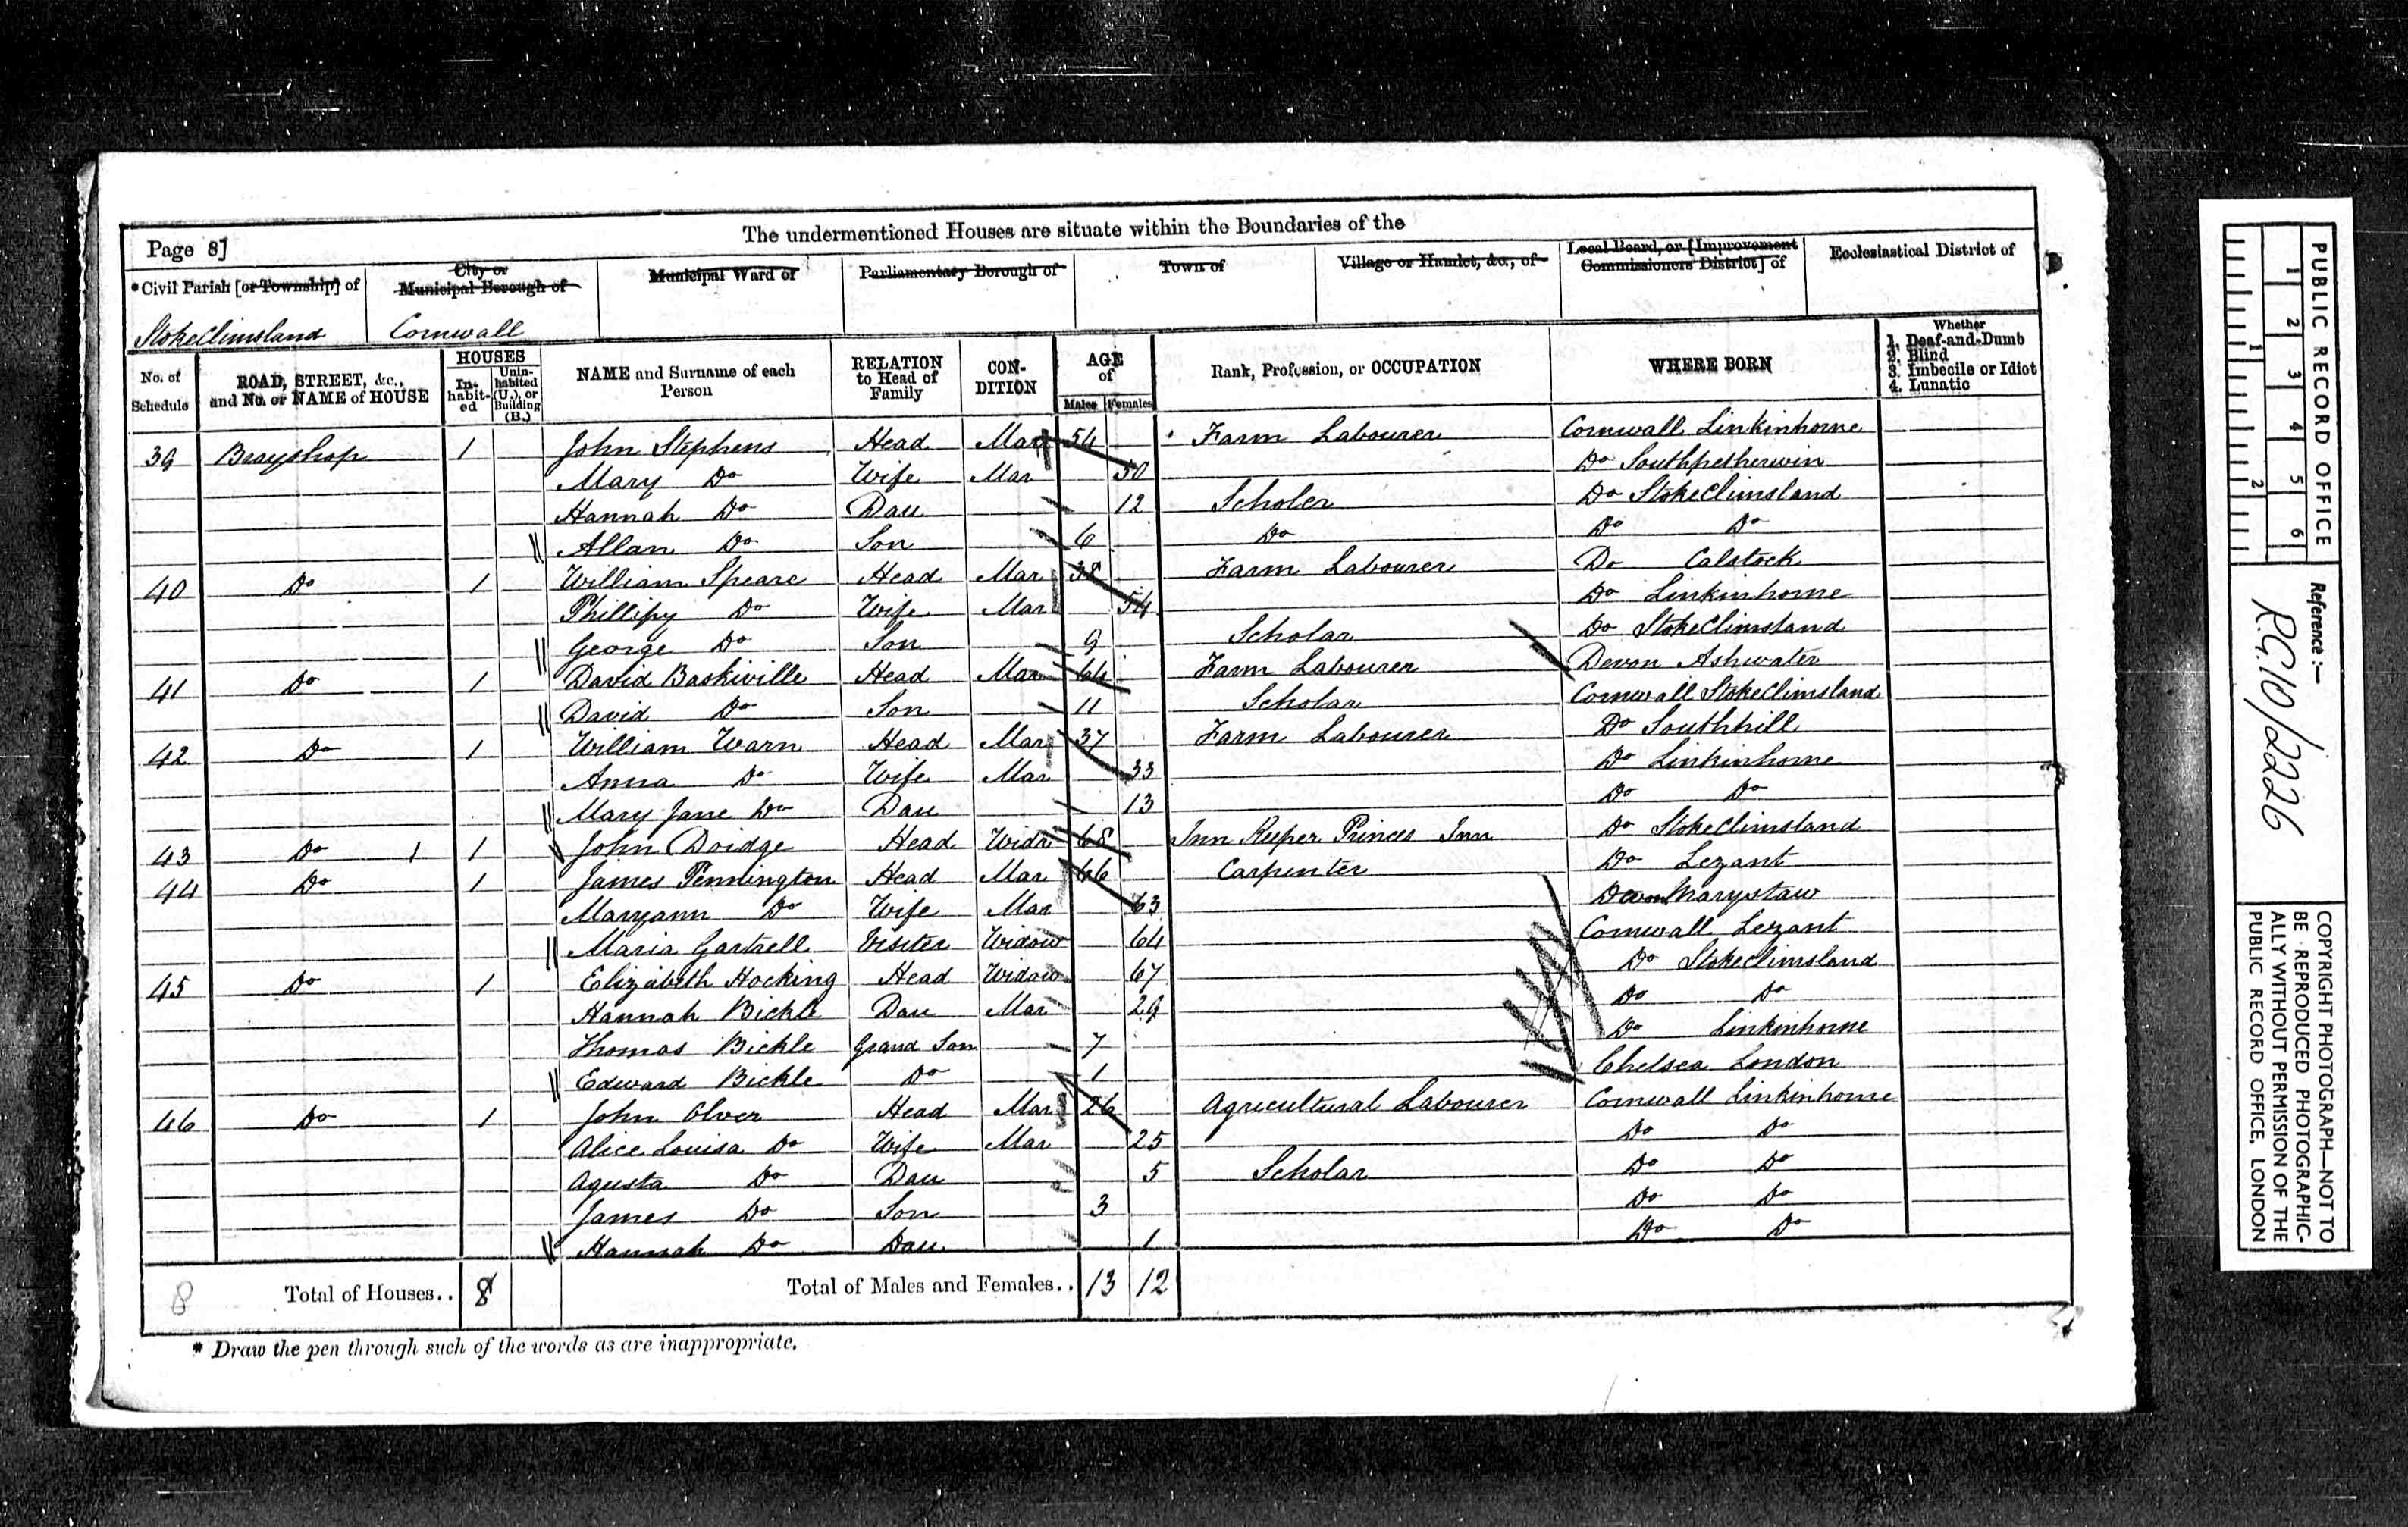 The undermentioned Houses are situate within the Boundaries of the
Page 8]
*Civil Parish [or Township] of
City or Municipal Borough of
Municipal Ward of
Parliamentary Borough of
Town of
Village or Hamlet, &c., of
Local Board, or [Improvement Commissioners District] of
Ecclesiastical District of
StokeClimsland Cornwall
No. of Schedule
ROAD, STREET, &c., and No. or NAME of HOUSE
HOUSES
In-habit-ed
Unin-habited (U.), or Building (B.)
NAME and Surname of each Person
RELATION to Head of Family
CON-DITION
AGE of
Males Females
Rank, Profession, or OCCUPATION
WHERE BORN
Whether
1. Deaf-and-Dumb
2. Blind
3. Imbecile or Idiot
4. Lunatic
39 Brayshop 1 John Stephens Head Mar 54 Farm Labourer Cornwall Linkinhorne
Mary Do Wife Mar 50 Do Southpetherwin
Hannah Do Dau 12 Scholer Do StokeClimsland
Allan Do Son 6 Do Do Do
40 Do 1 William Speare Head Mar 38 Farm Labourer Do Calstock
Phillipy Do Wife Mar 54 Do Linkinhorne
George Do Son 9 Scholar Do StokeClimsland
41 Do 1 David Baskiville Head Mar 64 Farm Labourer Devon Ashwater
David Do Son 11 Scholar Cornwall StokeClimsland
42 Do 1 William Warn Head Mar 37 Farm Labourer Do Southhill
Anna Do Wife Mar 33 Do Linkinhorne
Mary Jane Do Dau 13 Do Do
43 Do 1 1 John Doidge Head Widr 68 Inn Keeper Princes Inn Do StokeClimsland
44 Do 1 James Pennington Head Mar 66 Carpenter Do Lezant
Maryann Do Wife Mar 63 Devon Marystaw
Maria Gartrell Visiter Widow 64 Cornwall Lezant
45 Do 1 Elizabeth Hocking Head Widow 67 Do StokeClimsland
Hannah Bickle Dau Mar 29 Do Do
Thomas Bickle Grand Son 7 Do Linkinhorne
Edward Bickle Do 1 Chelsea London
46 Do 1 John Olver Head Mar 26 Agricultural Labourer Cornwall Linkinhorne
Alice Louisa Do Wife Mar 25 Do Do
Agusta Do Dau 5 Scholar Do Do
James Do Son 3 Do Do
Hannah Do Dau 1 Do Do
8 Total of Houses.. 8 Total of Males and Females.. 13 12
* Draw the pen through such of the words as are inappropriate.
PUBLIC RECORD OFFICE
1 2 3 4 5 6
1 2
Reference :-
R.G.10/2226
COPYRIGHT PHOTOGRAPH—NOT TO
BE REPRODUCED PHOTOGRAPHIC-
ALLY WITHOUT PERMISSION OF THE
PUBLIC RECORD OFFICE, LONDON